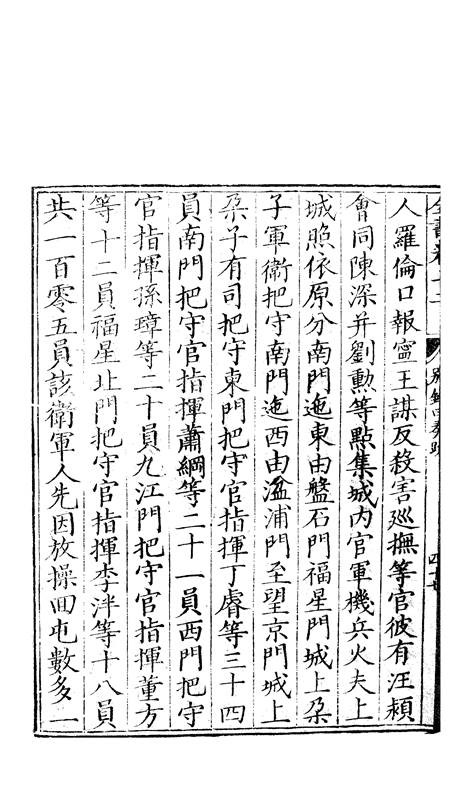 全書卷十二　別錄四奏疏　四十七
人羅倫口報寧王謀反殺害廵撫等官彼有汪頼
會同陳深并劉勲等點集城内官軍機兵火夫上
城照依原分南門迤東由盤石門福星門城上朶
子軍衛把守南門迤西由湓浦門至望京門城上
朶子有司把守東門把守官指揮丁睿等三十四
員南門把守官指揮蕭綱等二十一員西門把守
官指揮孫璋等二十員九江門把守官指揮董方
等十二員福星北門把守官指揮李泮等十八員
共一百零五員該衛軍人先因放操囬屯數多一